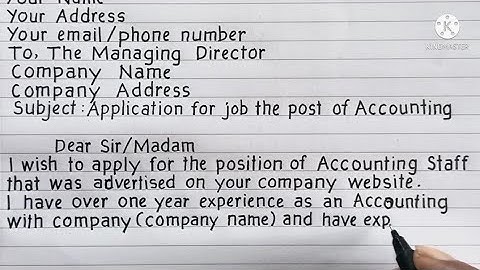 Your Name
Your Address
Your email/phone number
To, The Managing Director
Company Name
Company Address
Subject: Application for job the post of Accounting
Dear Sir/Madam
I wish to apply for the position of Accounting Staff
that was advertised on your company website.
I have over one year experience as an Accounting
with company (company name) and have exp
KINEMASTER